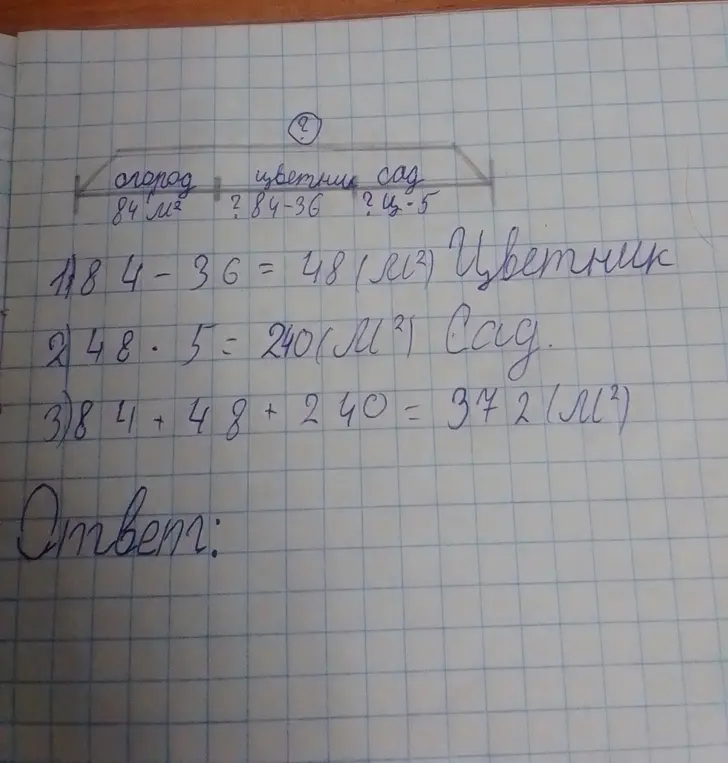 ?
огород цветник сад
84 м² ? 84-36 ? ц·5
1) 84-36=48(м²) Цветник
2) 48·5=240(м²) Сад.
3) 84+48+240=372(м²)
Ответ: